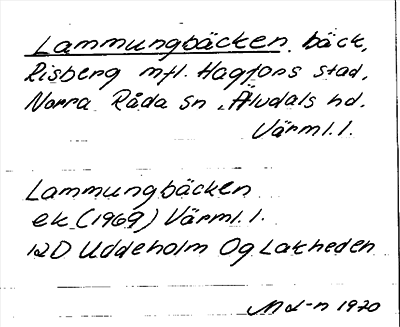 Lammungbäcken bäck,
Risberg mfl. Hagfors stad,
Norra Råda sn, Älvdals hd.
Värml. l.
Lammungbäcken
ek. (1969) Värml. l.
12D Uddeholm 0g Lakheden
1970